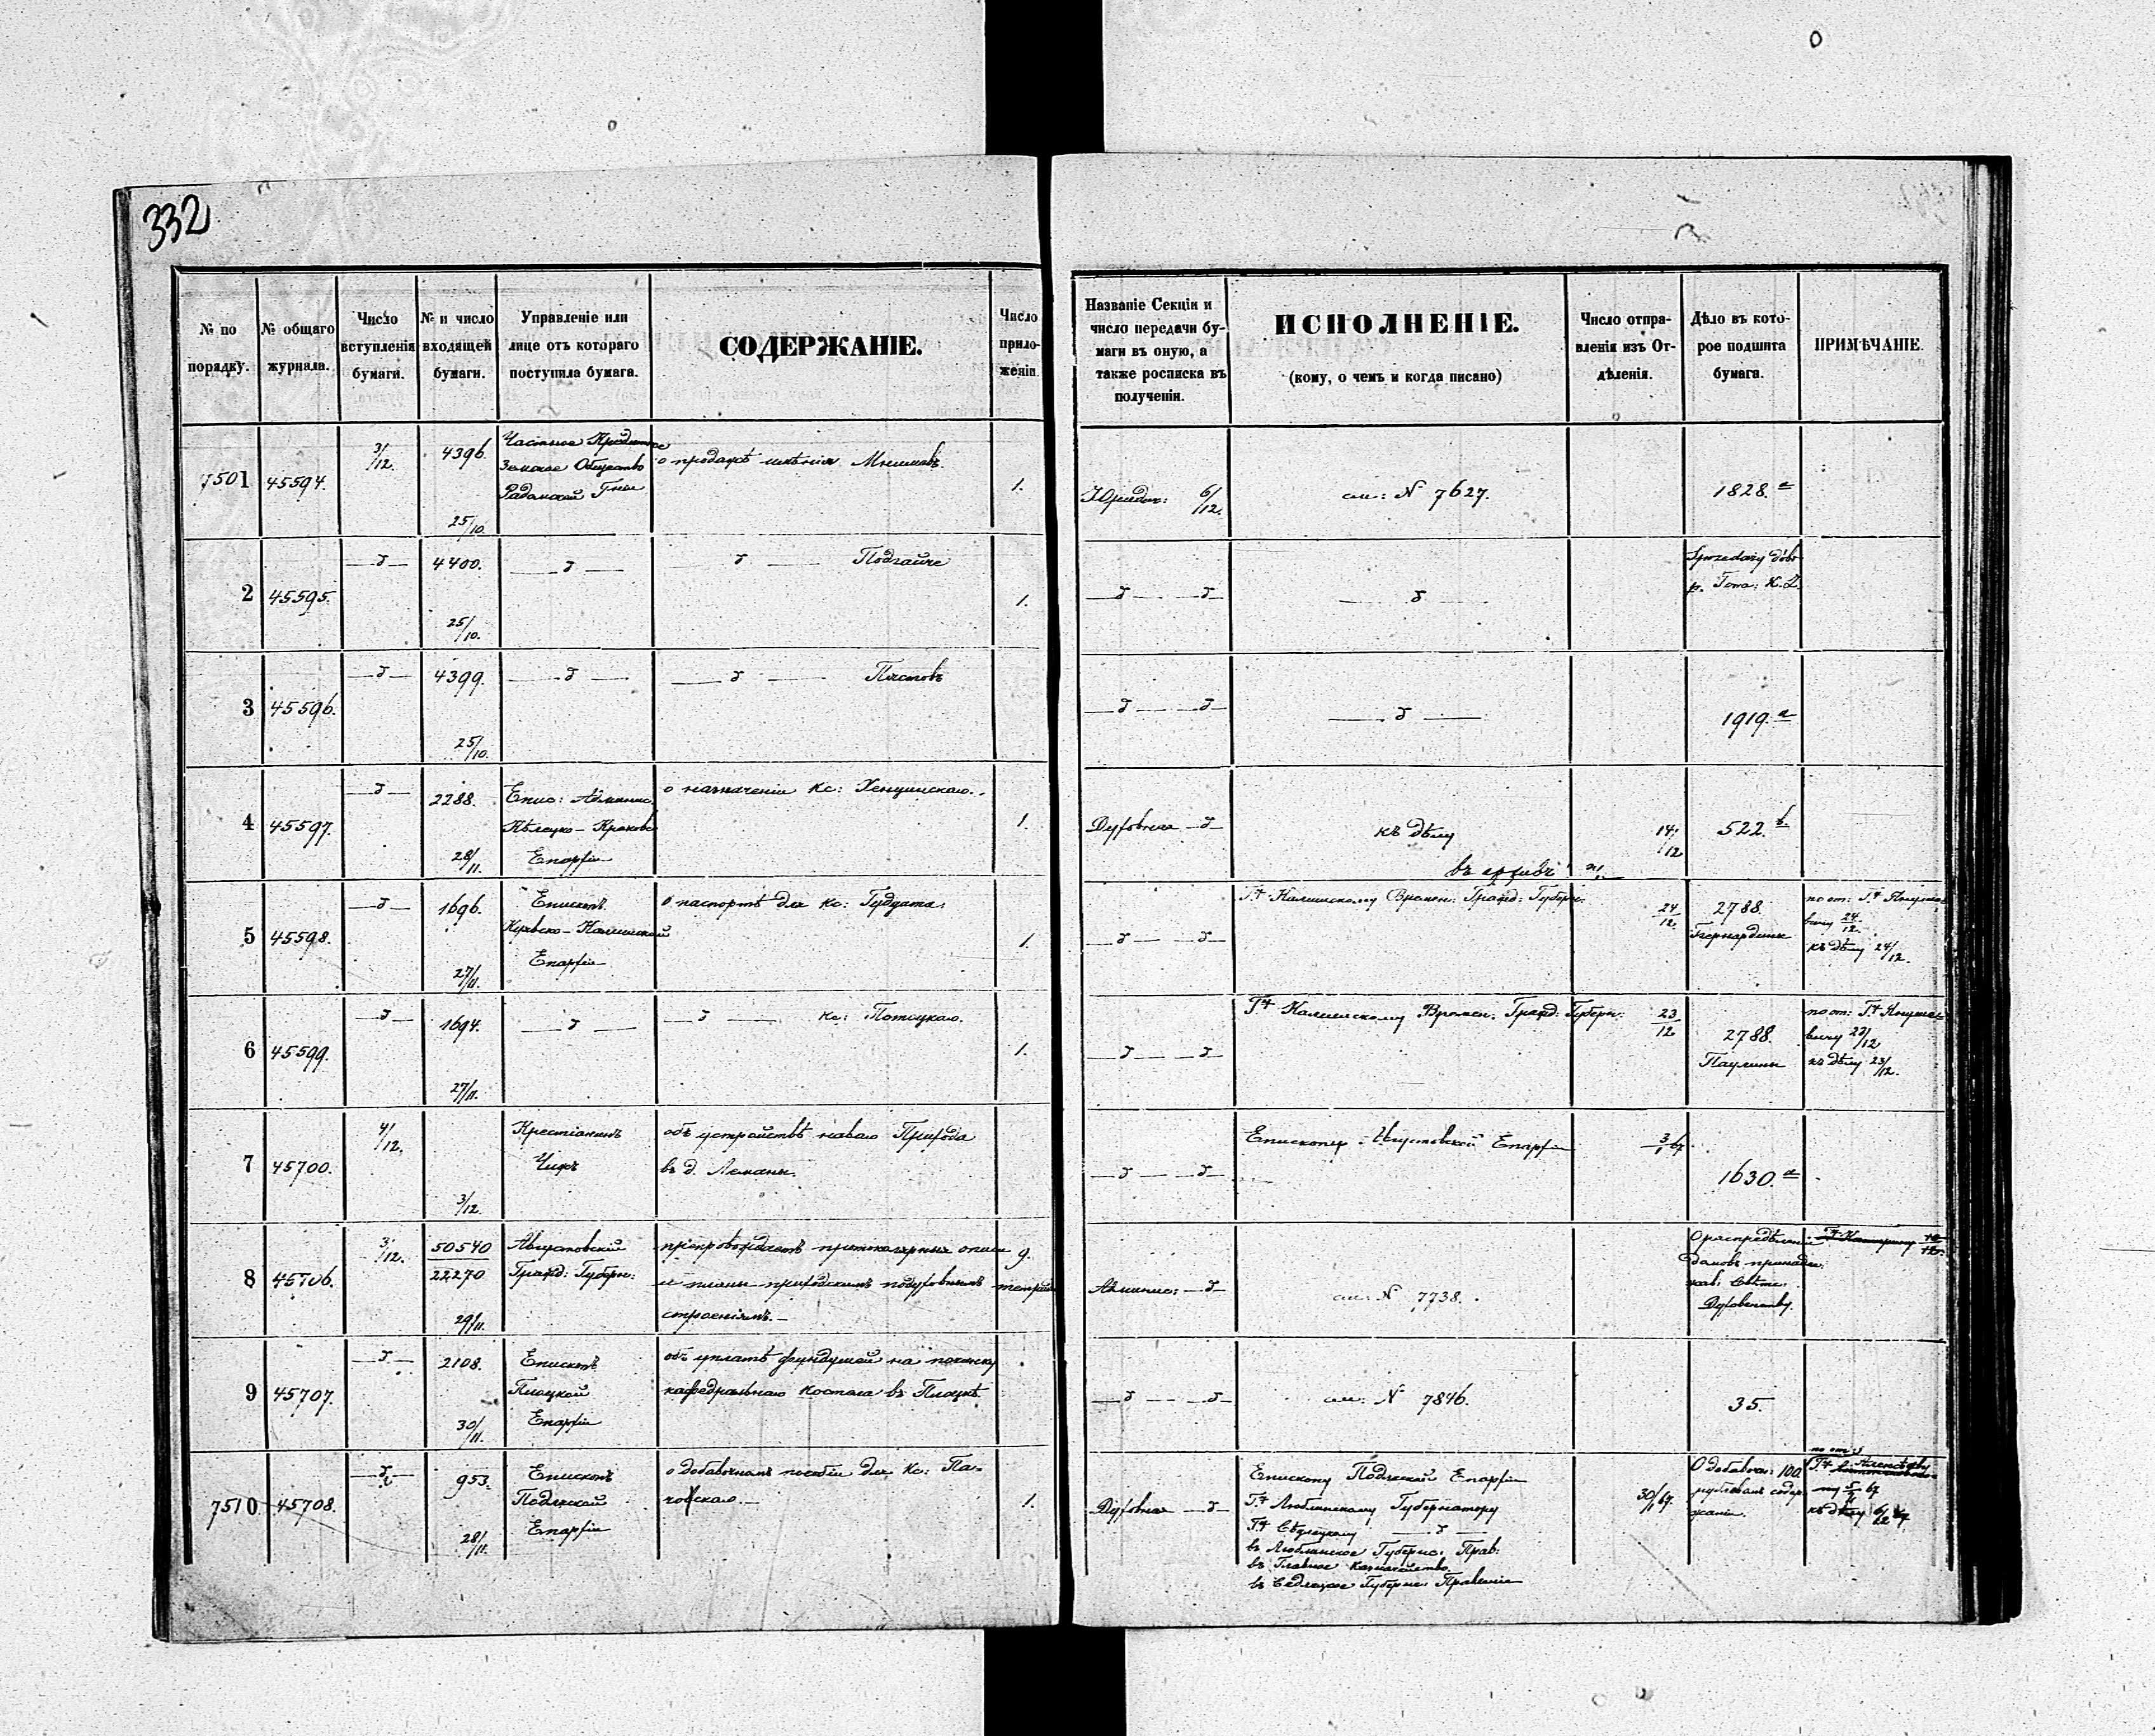 332
№ по порядку.
№ общаго журнала.
Число вступленія бумаги.
№ и число входящей бумаги.
Управленіе или лице отъ котораго поступила бумага.
СОДЕРЖАНІЕ.
Число прило- женій.
Названіе Секціи и число передачи бу- маги въ оную, а также росписка въ полученіи.
ИСПОЛНЕНІЕ.
(кому, о чемъ и когда писано)
Число отпра- вленія изъ От- дѣленія.
Дѣло въ кото- рое подшита бумага.
ПРИМѢЧАНІЕ.
7501 45594. 3/12. 4396. 25/10.
Частное Кредитное
Земское Общество
Радомской Гніи
о продажѣ имѣнія
1.
6/12. см: N 7627. 1828. a
2 45595. 4400. 25/10. Подгайче 1.
Sprzedaży dóbr
p. Tow: K. Z.
3 45596. 4399. 25/10. 1919. a
4 45597. 2288. 28/11.
Епис: Админис
Кѣлецко-Краковс
Епархіи
о назначеніи Кс: Хенцинскаго.
1. Духовная къ дѣлу 14/12 522. b.
въ архивъ
5 45598. 1696. 27/11.
Епископъ
Куявско-Калишской
Епархіи
о паспортѣ для Кс:
1.
Калишскому Времен: Гражд: Губерн:
24/12. 2788.
Бернардины
къ дѣлу 24/12.
6 45599. 1694. 27/11. Кс: Потоцкаго. 1.
Калишскому Времен: Гражд: Губерн: 23/12
2788.
Паулины
къ дѣлу 23/12.
7 45700. 4/12. 3/12.
Крестіанинъ
Чикъ
объ устройствѣ новаго Прихода
въ д. Леманы.
Епископу Августовской Епархіи
1630. a
8 45706. 3/12. 50540 22270 29/11.
Августовскій
Гражд: Губерн:
препровождаетъ протоколярныя описи 9.
и планы приходскимъ подуховнымъ тетрадь
строеніямъ.
Админис: см: N 7738.
О распредѣленіи
домовъ принадле:
Свѣтс:
Духовенству.
9 45707. 2108. 30/11.
Епископъ
Плоцкой
Епархіи
объ уплатѣ фундушей на починку
кафедральнаго костела въ Плоцкѣ
см: N 7846. 35.
7510 45708. 953. 28/11.
Епископъ
Подляской
Епархіи
о добавочномъ пособіи для Кс: Па-
1. Духовная
Епископу Подляской Епархіи
Люблинскому Губернатору
Сѣдлецкому
въ Люблинское Губернс: Прав:
въ Главное Казначейство
въ Седлецкое Губернс: Правленіе
О добавоч: 100
рублевомъ содер
жаніи.
къ дѣлу